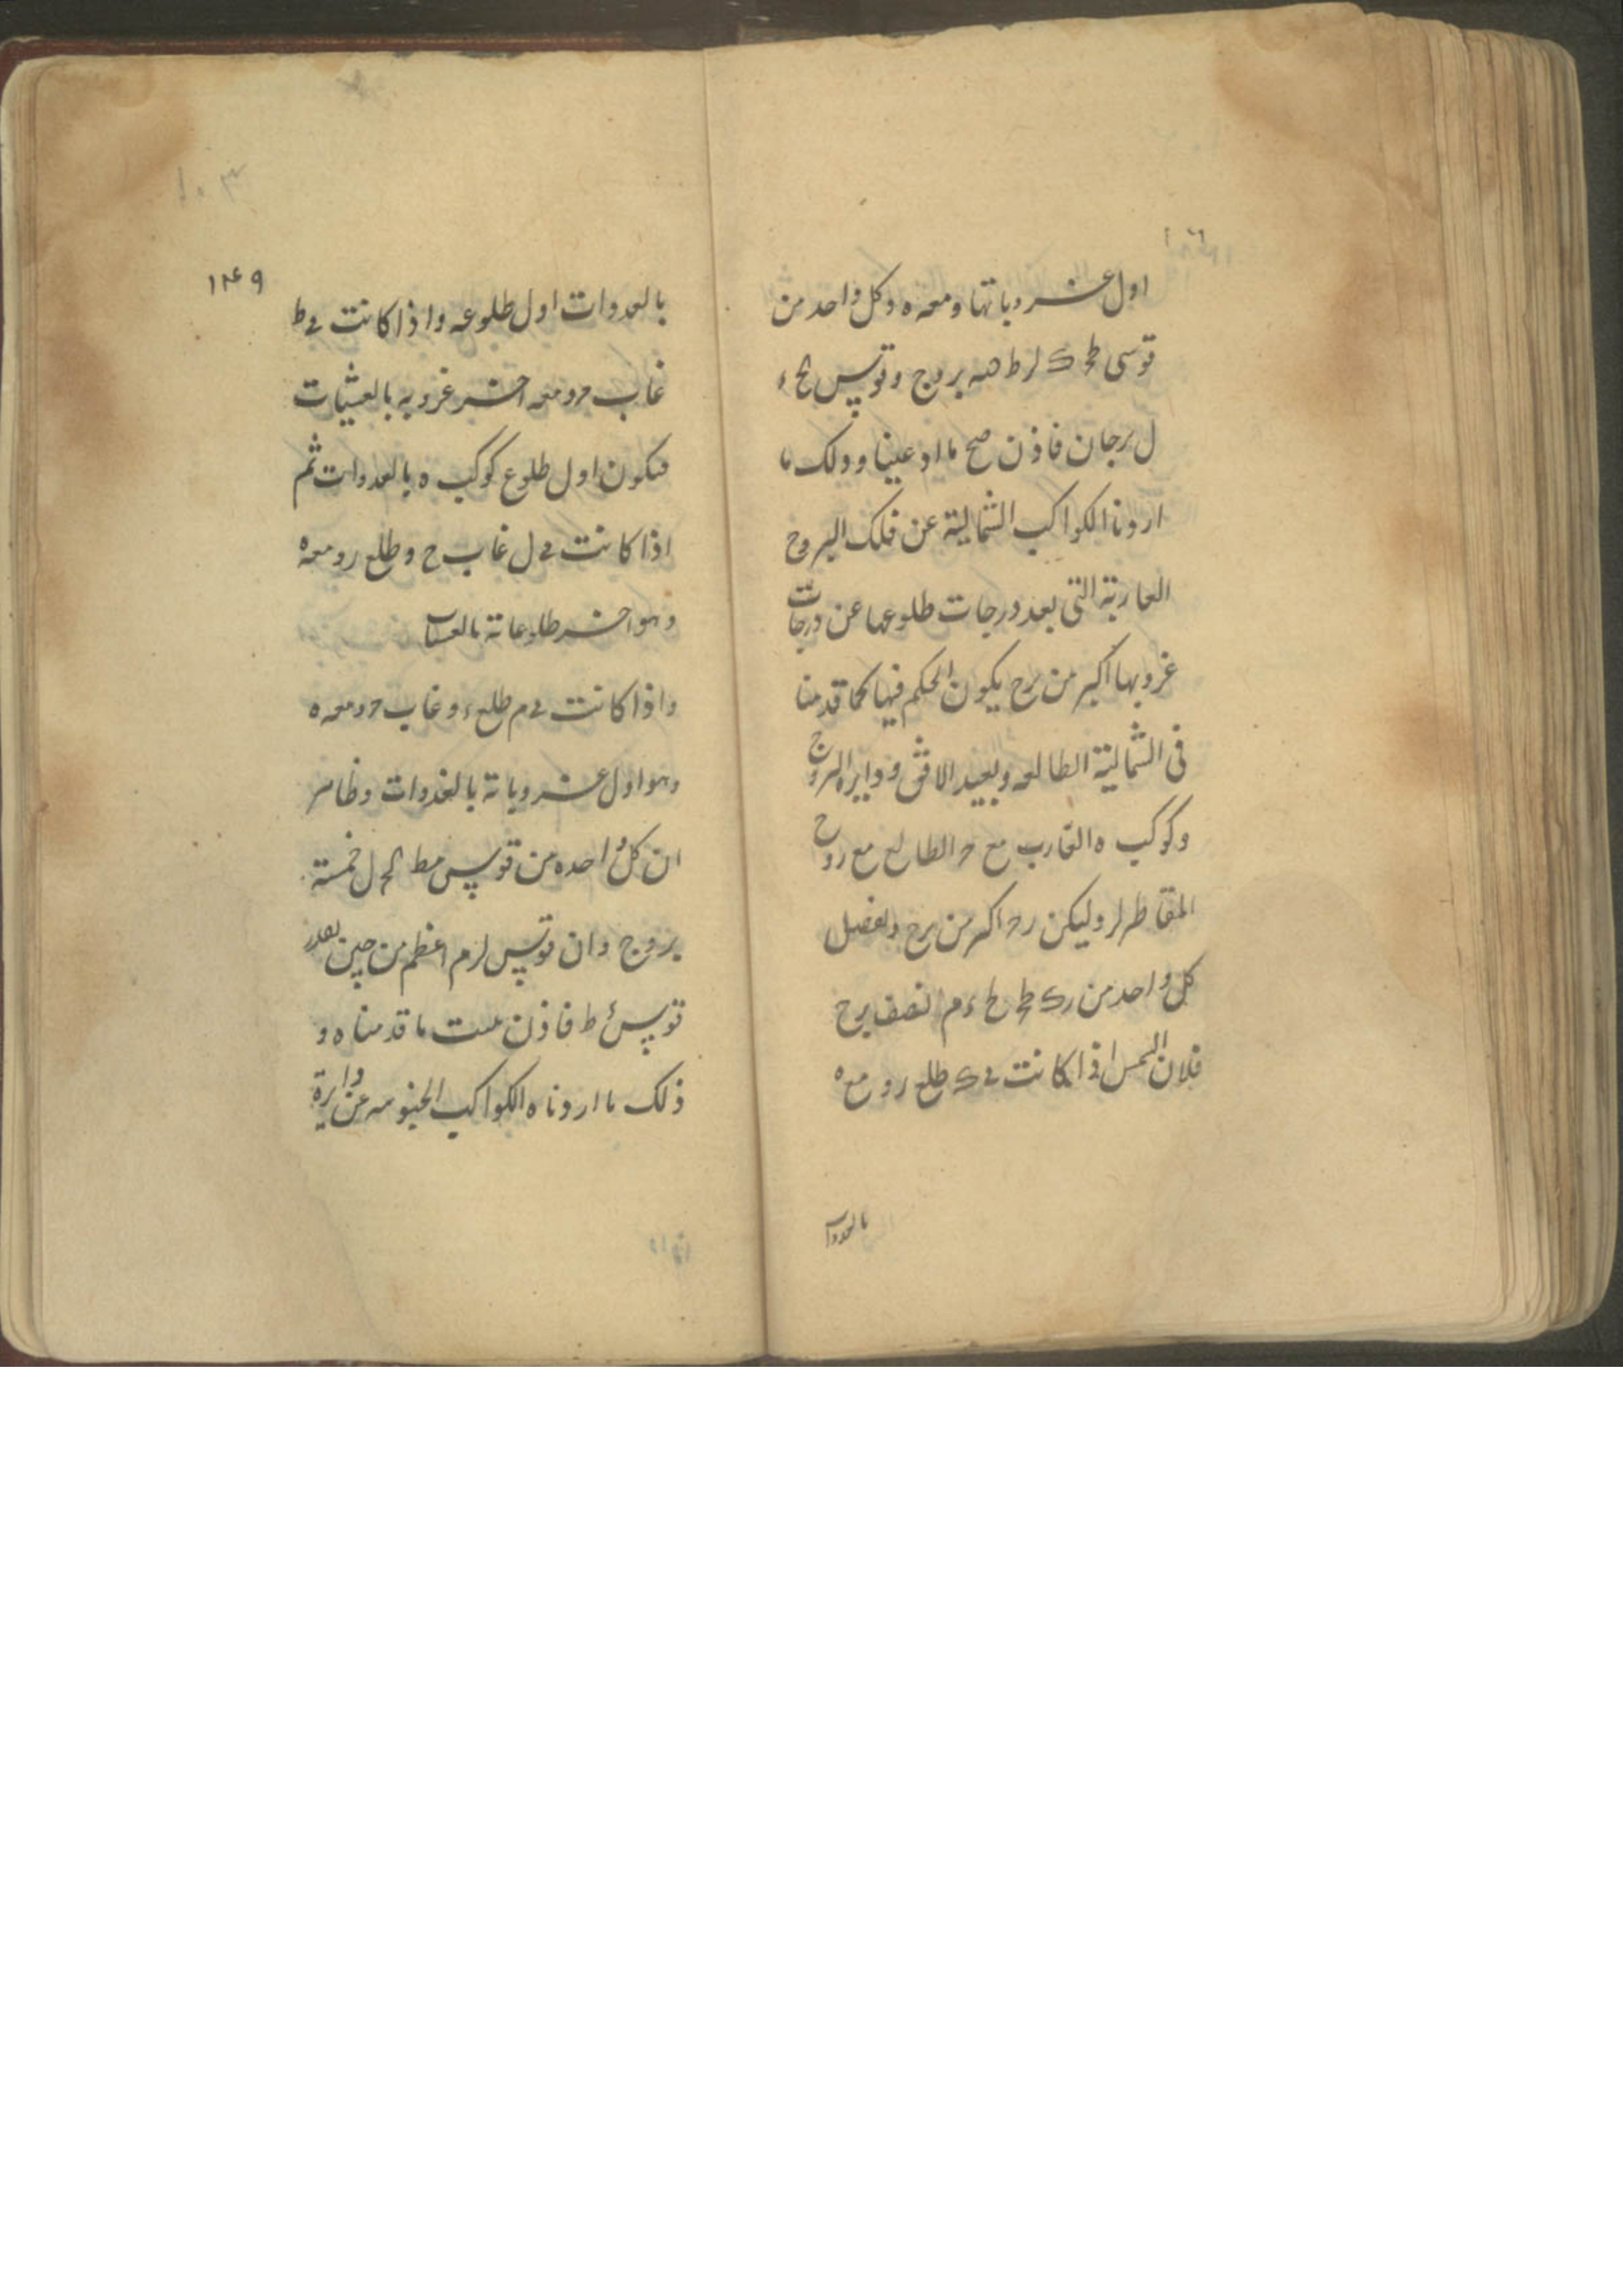 اول غروباتها ومعه ه وكل واحد من
قوسى طح ك لر ط خمسه بروج وقوس ح ء
ل برجان فاذن صح ما ادعينا وذلك ما
اردنا الكواكب الشمالية عن فلك البروج
الغاربة التى بعد درجات طلوعها عن درجات
غروبها اكبر من برج يكون الحكم فيها كما قدمنا
فى الشمالية الطالعه ولبعيد الافق ودايره البروج
وكوكب ه الغارب مع ح الطالع مع ر وح
المقاطر لر وليكن رح اكبر من برج ولفصل
كل واحد من رك طح ء م نصف برج
فلان الشمس اذا كانت فى ك طلع ر ومع ه
بالعدوات
١٤٩
بالعدوات اول طلوعه واذا كانت فى ط
غاب ح ومعه اخر غروبه بالعشيات
فيكون اول طلوع كوكب ه بالعدوات ثم
اذا كانت فى ل غاب ح وطلع ر ومعه ه
وهو اخر طلوعاته بالعسات
واذا كانت فى م طلع ء وغاب ح ومعه ه
وهو اول غروباته بالغدوات وظاهر
ان كل واحده من قوسى مط ل خمسة
بروج وان قوس لر م اعظم من حين بقدر
قوس ط فاذن ثبت ما قدمناه و
ذلك ما اردناه الكواكب الجنوبيه عن دايرة